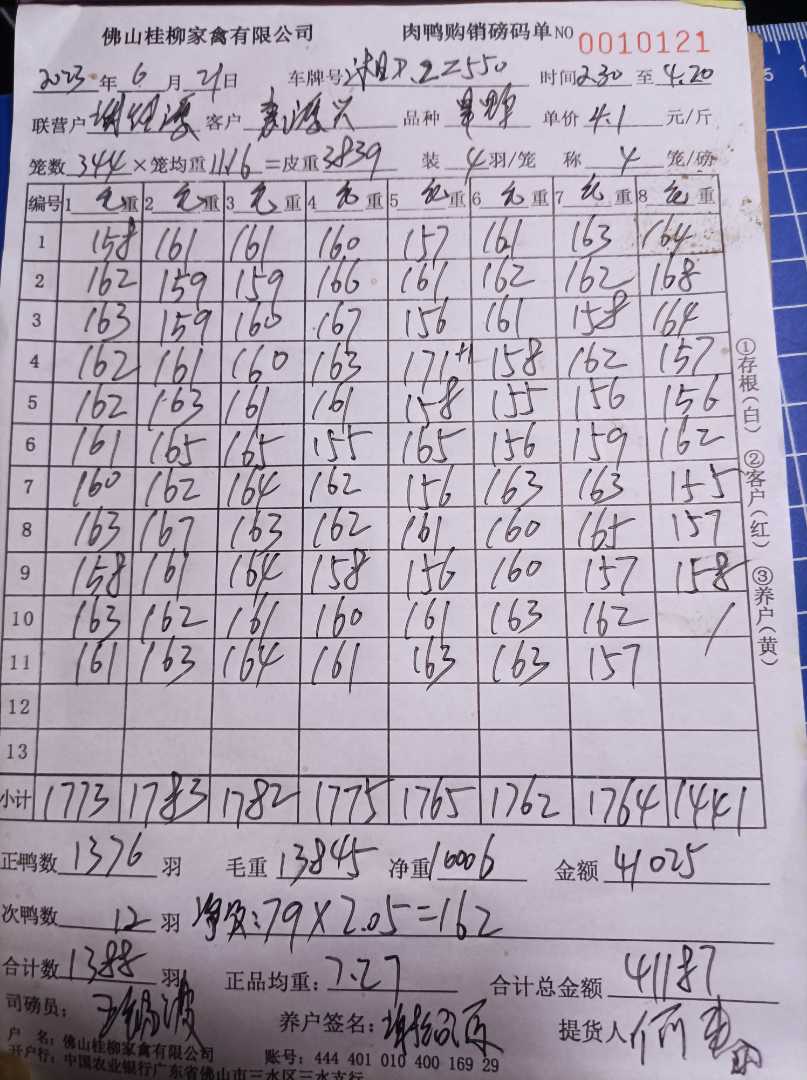 佛山桂柳家禽有限公司 肉鸭购销磅码单 NO 0010121
2023 年 6 月 21 日 车牌号 湘 22550 时间 2.30 至 4.20
联营户 客户 品种 单价 4.1 元/斤
笼数 344 × 笼均重 11.16 = 皮重 3839 装 4 羽/笼 称 4 笼/磅
编号 1 毛重 2 毛重 3 毛重 4 毛重 5 毛重 6 毛重 7 毛重 8 毛重
1 158 161 161 160 157 161 163 164
2 162 159 159 166 161 162 162 168
3 163 159 160 167 156 161 158 164
4 162 161 160 163 171+1 158 162 157
5 162 163 161 161 158 155 156 156
6 161 165 165 155 165 156 159 162
7 160 162 164 162 156 163 163 155
8 163 167 163 162 161 160 165 157
9 158 161 164 158 156 160 157 158
10 163 162 161 160 161 163 162 /
11 161 163 164 161 163 163 157
12
13
小计 1773 1783 1782 1775 1765 1762 1764 1441
正鸭数 1376 羽 毛重 13845 净重 10006 金额 41025
次鸭数 12 羽 净重:79×2.05=162
合计数 1388 羽 正品均重: 7.27 合计总金额 41187
司磅员: 养户签名: 提货人
户 名: 佛山桂柳家禽有限公司 账号: 444 401 010 400 169 29
开户行: 中国农业银行广东省佛山市三水区三水支行
①存根(白) ②客户(红) ③养户(黄)